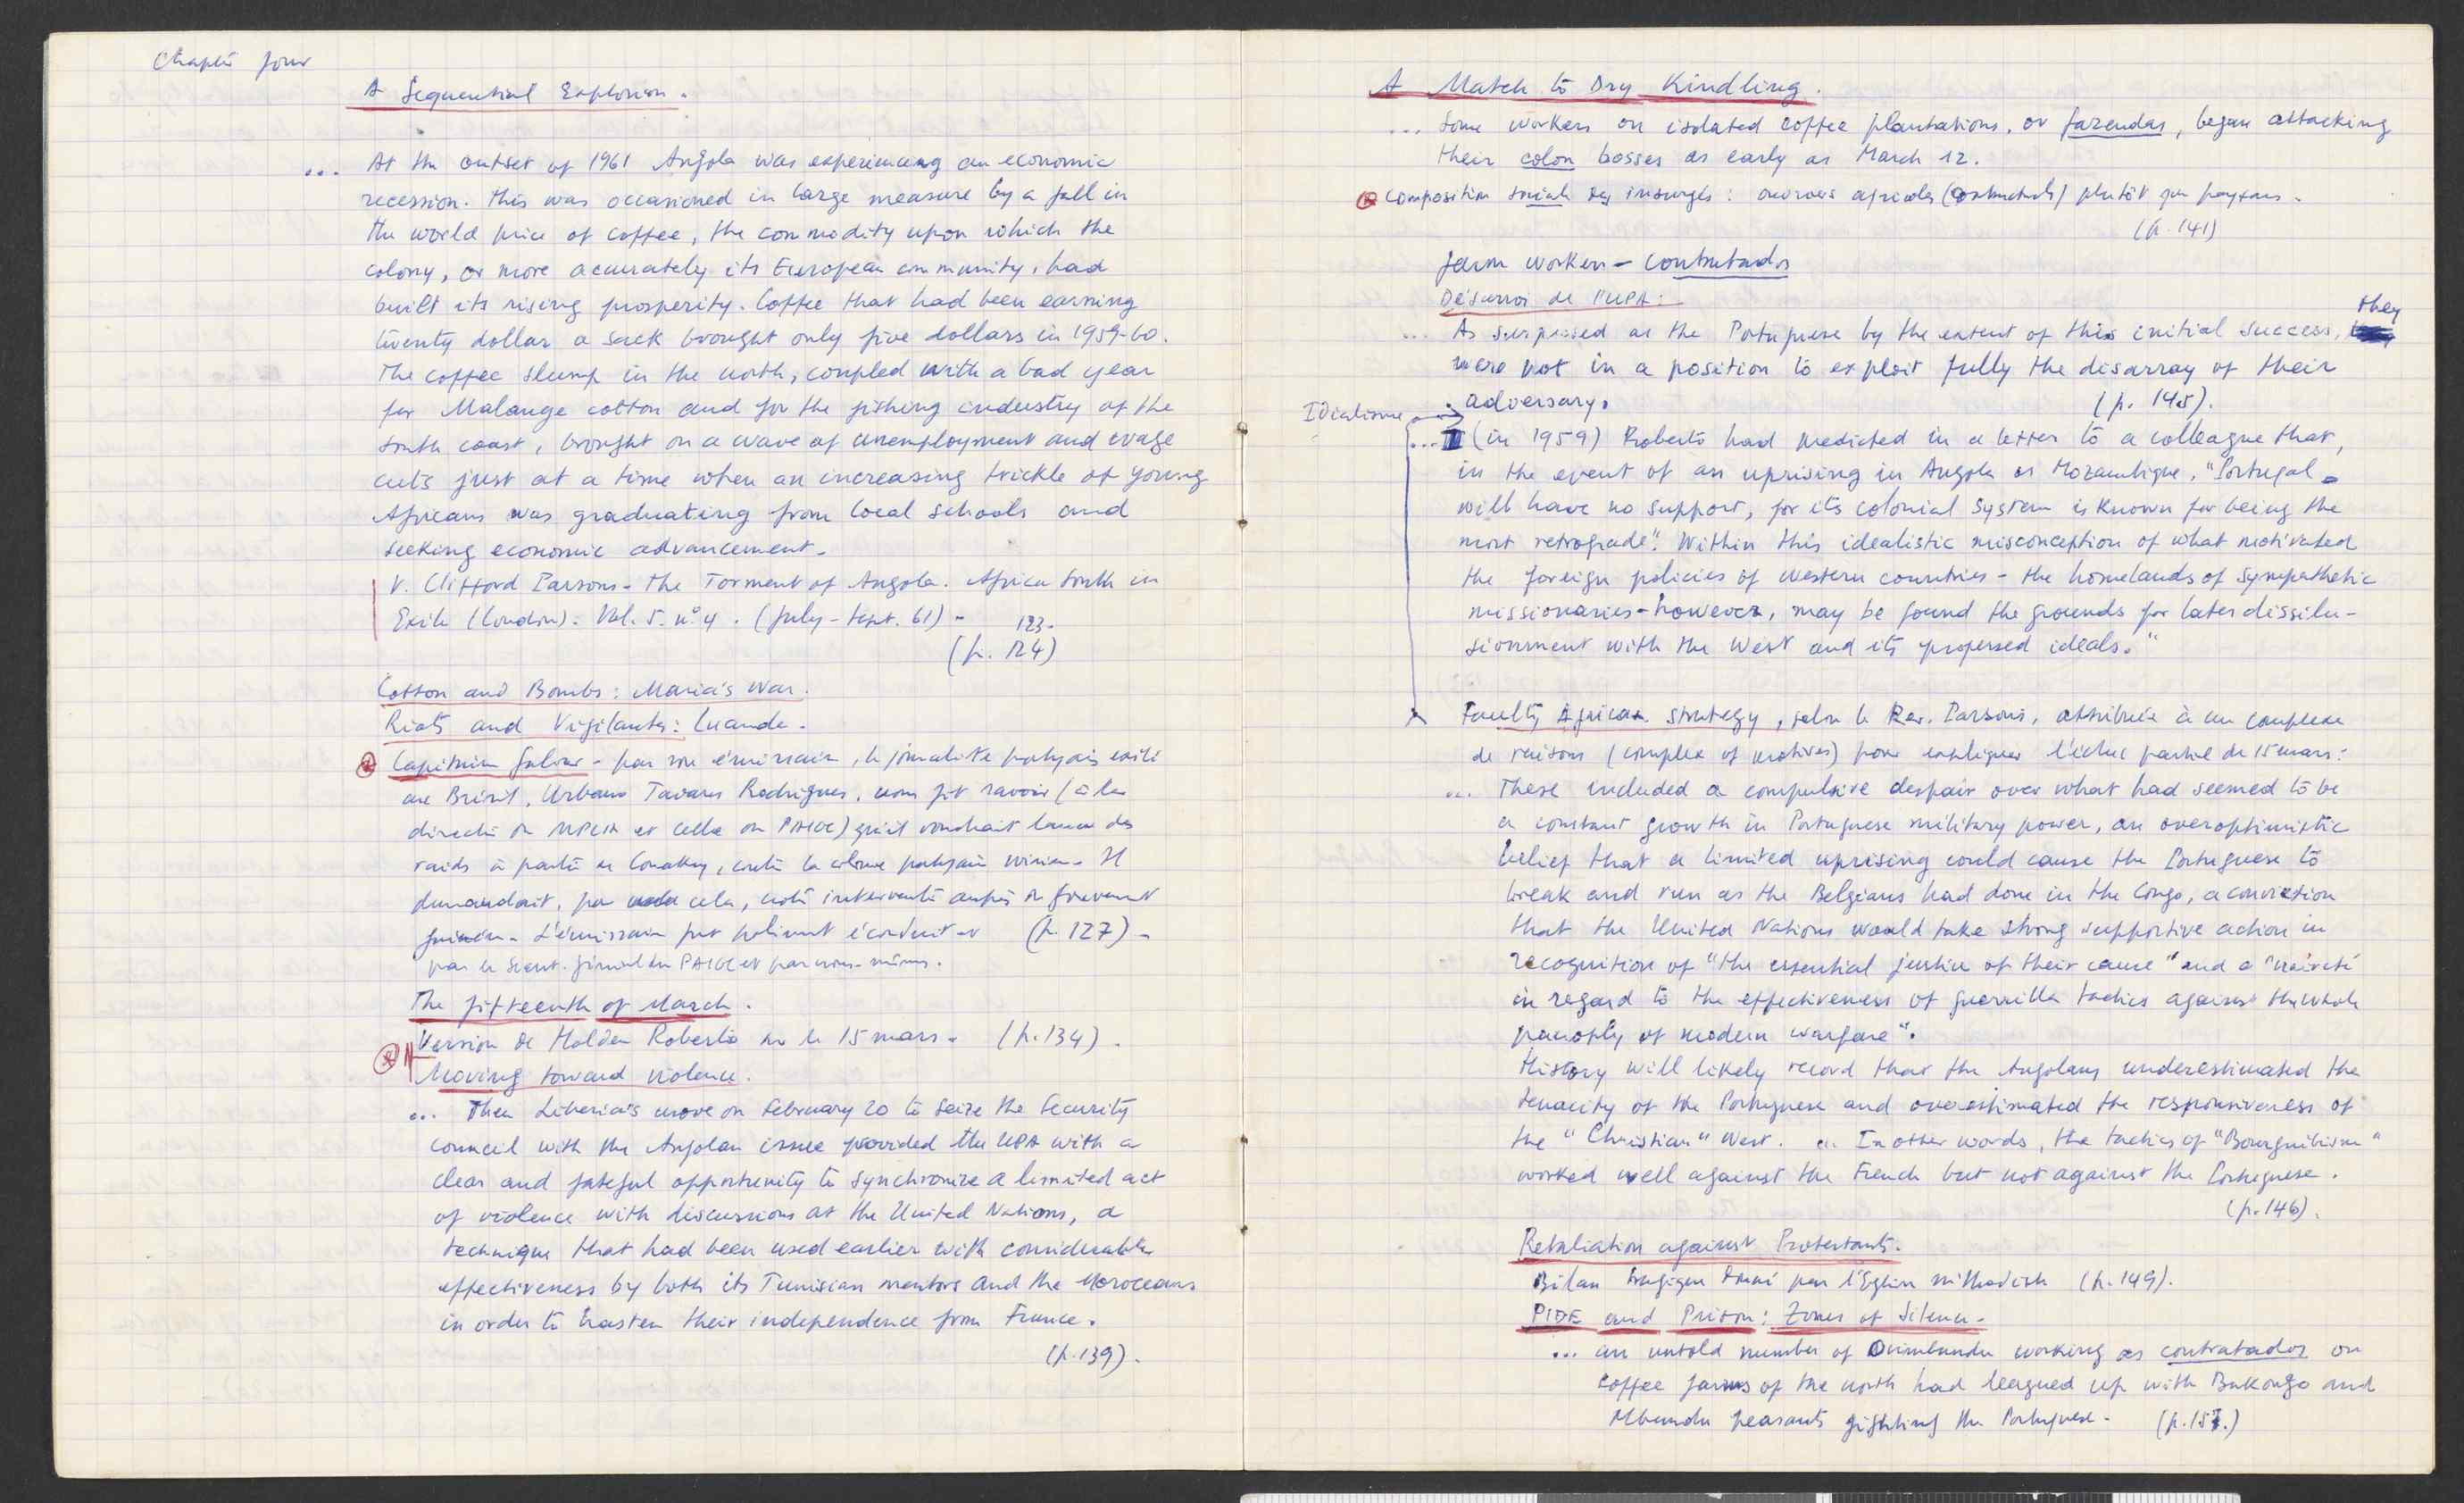 Chapter four
A Sequential Explosion.
... At the outset of 1961 Angola was experiencing an economic
recession. This was occasioned in large measure by a fall in
the world price of coffee, the commodity upon which the
colony, or more acurately its European community, had
built its rising prosperity. Coffee that had been earning
twenty dollar a sack brought only five dollars in 1959-60.
The coffee slump in the north, coupled with a bad year
for Malange cotton and for the fishing industry of the
south coast, brought on a wave of unemployment and wage
cuts just at a time when an increasing trickle of young
Africans was graduating from local schools and
seeking economic advancement.
V. Clifford Parsons - The Torment of Angola. Africa South in
Exile (London). Vol. 5. nº 4. (July - Sept. 61) -
123.
(p. 124)
Cotton and Bombs: Maria's War.
Riots and Vigilantes: Luanda.
Capitaine Galvao - par son émissaire, le journaliste portugais exilé
au Brésil, Urbano Tavares Rodrigues, nous fit savoir (à la
direction du MPLA et celle du PAIGC) qu'il voudrait lancer des
raids à partir de Conakry, contre la colonie portugaise voisine. Il
demandait, pour cela, notre intervention auprès du gouvernement
guinéen. L'émissaire fut poliment éconduit (p. 127) -
par le Secret. général du PAIGC et par nous-mêmes.
The fifteenth of March.
Version de Holden Roberto sur le 15 mars. (p. 134).
Moving toward violence.
... Then Liberia's move on February 20 to seize the Security
Council with the Angolan issue provided the UPA with a
clear and fateful opportunity to synchronize a limited act
of violence with discussions at the United Nations, a
technique that had been used earlier with considerable
effectiveness by both its Tunisian mentors and the Moroccans
in order to hasten their independence from France.
(p. 139).
A Match to Dry Kindling.
... Some workers on isolated coffee plantations, or fazendas, began attacking
their colon bosses as early as March 12.
Composition sociale des insurgés: ouvriers agricoles (contratados) plutôt que paysans.
(p. 141)
farm workers - contratados
Désarroi de l'UPA:
... As surprised as the Portuguese by the extent of this initial success, they
were not in a position to exploit fully the disarray of their
adversary. (p. 145).
Idéalisme
... (in 1959) Roberto had predicted in a letter to a colleague that,
in the event of an uprising in Angola or Mozambique, "Portugal
will have no support, for its colonial system is known for being the
most retrograde". Within this idealistic misconception of what motivated
the foreign policies of western countries - the homelands of sympathetic
missionaries - however, may be found the grounds for later dissilu-
sionment with the West and its professed ideals."
Faulty African strategy, selon le Rev. Parsons, attribuée à un complexe
de raisons (complex of motives) pour expliquer l'échec partiel du 15 mars:
... These included a compulsive despair over what had seemed to be
a constant growth in Portuguese military power, an overoptimistic
belief that a limited uprising could cause the Portuguese to
break and run as the Belgians had done in the Congo, a conviction
that the United Nations would take strong supportive action in
recognition of "the essential justice of their cause" and a "naïveté
in regard to the effectiveness of guerrilla tactics against the whole
panoply of modern warfare".
History will likely record that the Angolans underestimated the
tenacity of the Portuguese and overestimated the responsiveness of
the "Christian" West. ... In other words, the tactics of "Bourguibism"
worked well against the French but not against the Portuguese.
(p. 146).
Retaliation against Protestants.
Bilan tragique donné par l'Eglise méthodiste (p. 149).
PIDE and Prison: Zones of Silence.
... an untold number of Ovimbundu working as contratados on
coffee farms of the north had leagued up with Bakongo and
Mbundu peasants fighting the Portuguese.